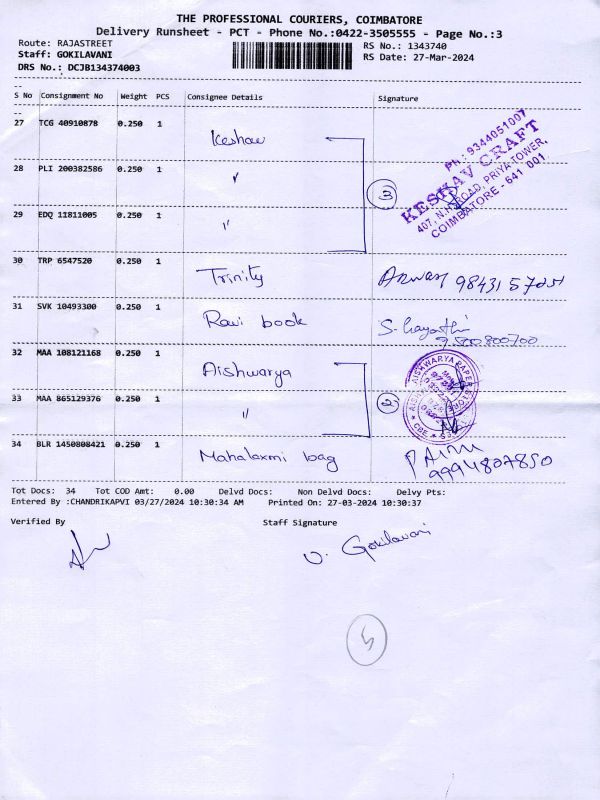 THE PROFESSIONAL COURIERS, COIMBATORE
Delivery Runsheet - PCT - Phone No.:0422-3505555 - Page No.:3
Route: RAJASTREET
RS No.: 1343740
Staff: GOKILAVANI
RS Date: 27-Mar-2024
DRS No.: DCJB134374003
S No Consignment No Weight PCS Consignee Details Signature
27 TCG 40910878 0.250 1 Keshav
PH: 9344051007
KESHAV CRAFT
407, N.H. ROAD, PRIYA TOWER,
COIMBATORE - 641 001.
28 PLI 200382586 0.250 1 "
3
29 EDQ 11811005 0.250 1 "
30 TRP 6547520 0.250 1 Trinity
31 SVK 10493300 0.250 1 Ravi book
32 MAA 108121168 0.250 1 Aishwarya
AISHWARYA PAPER
33 MAA 865129376 0.250 1 "
2
34 BLR 1450808421 0.250 1 Mahalaxmi bag 9994807850
Tot Docs: 34 Tot COD Amt: 0.00 Delvd Docs: Non Delvd Docs: Delvy Pts:
Entered By :CHANDRIKAPVI 03/27/2024 10:30:34 AM Printed On: 27-03-2024 10:30:37
Verified By Staff Signature
V. Gokilavani
5